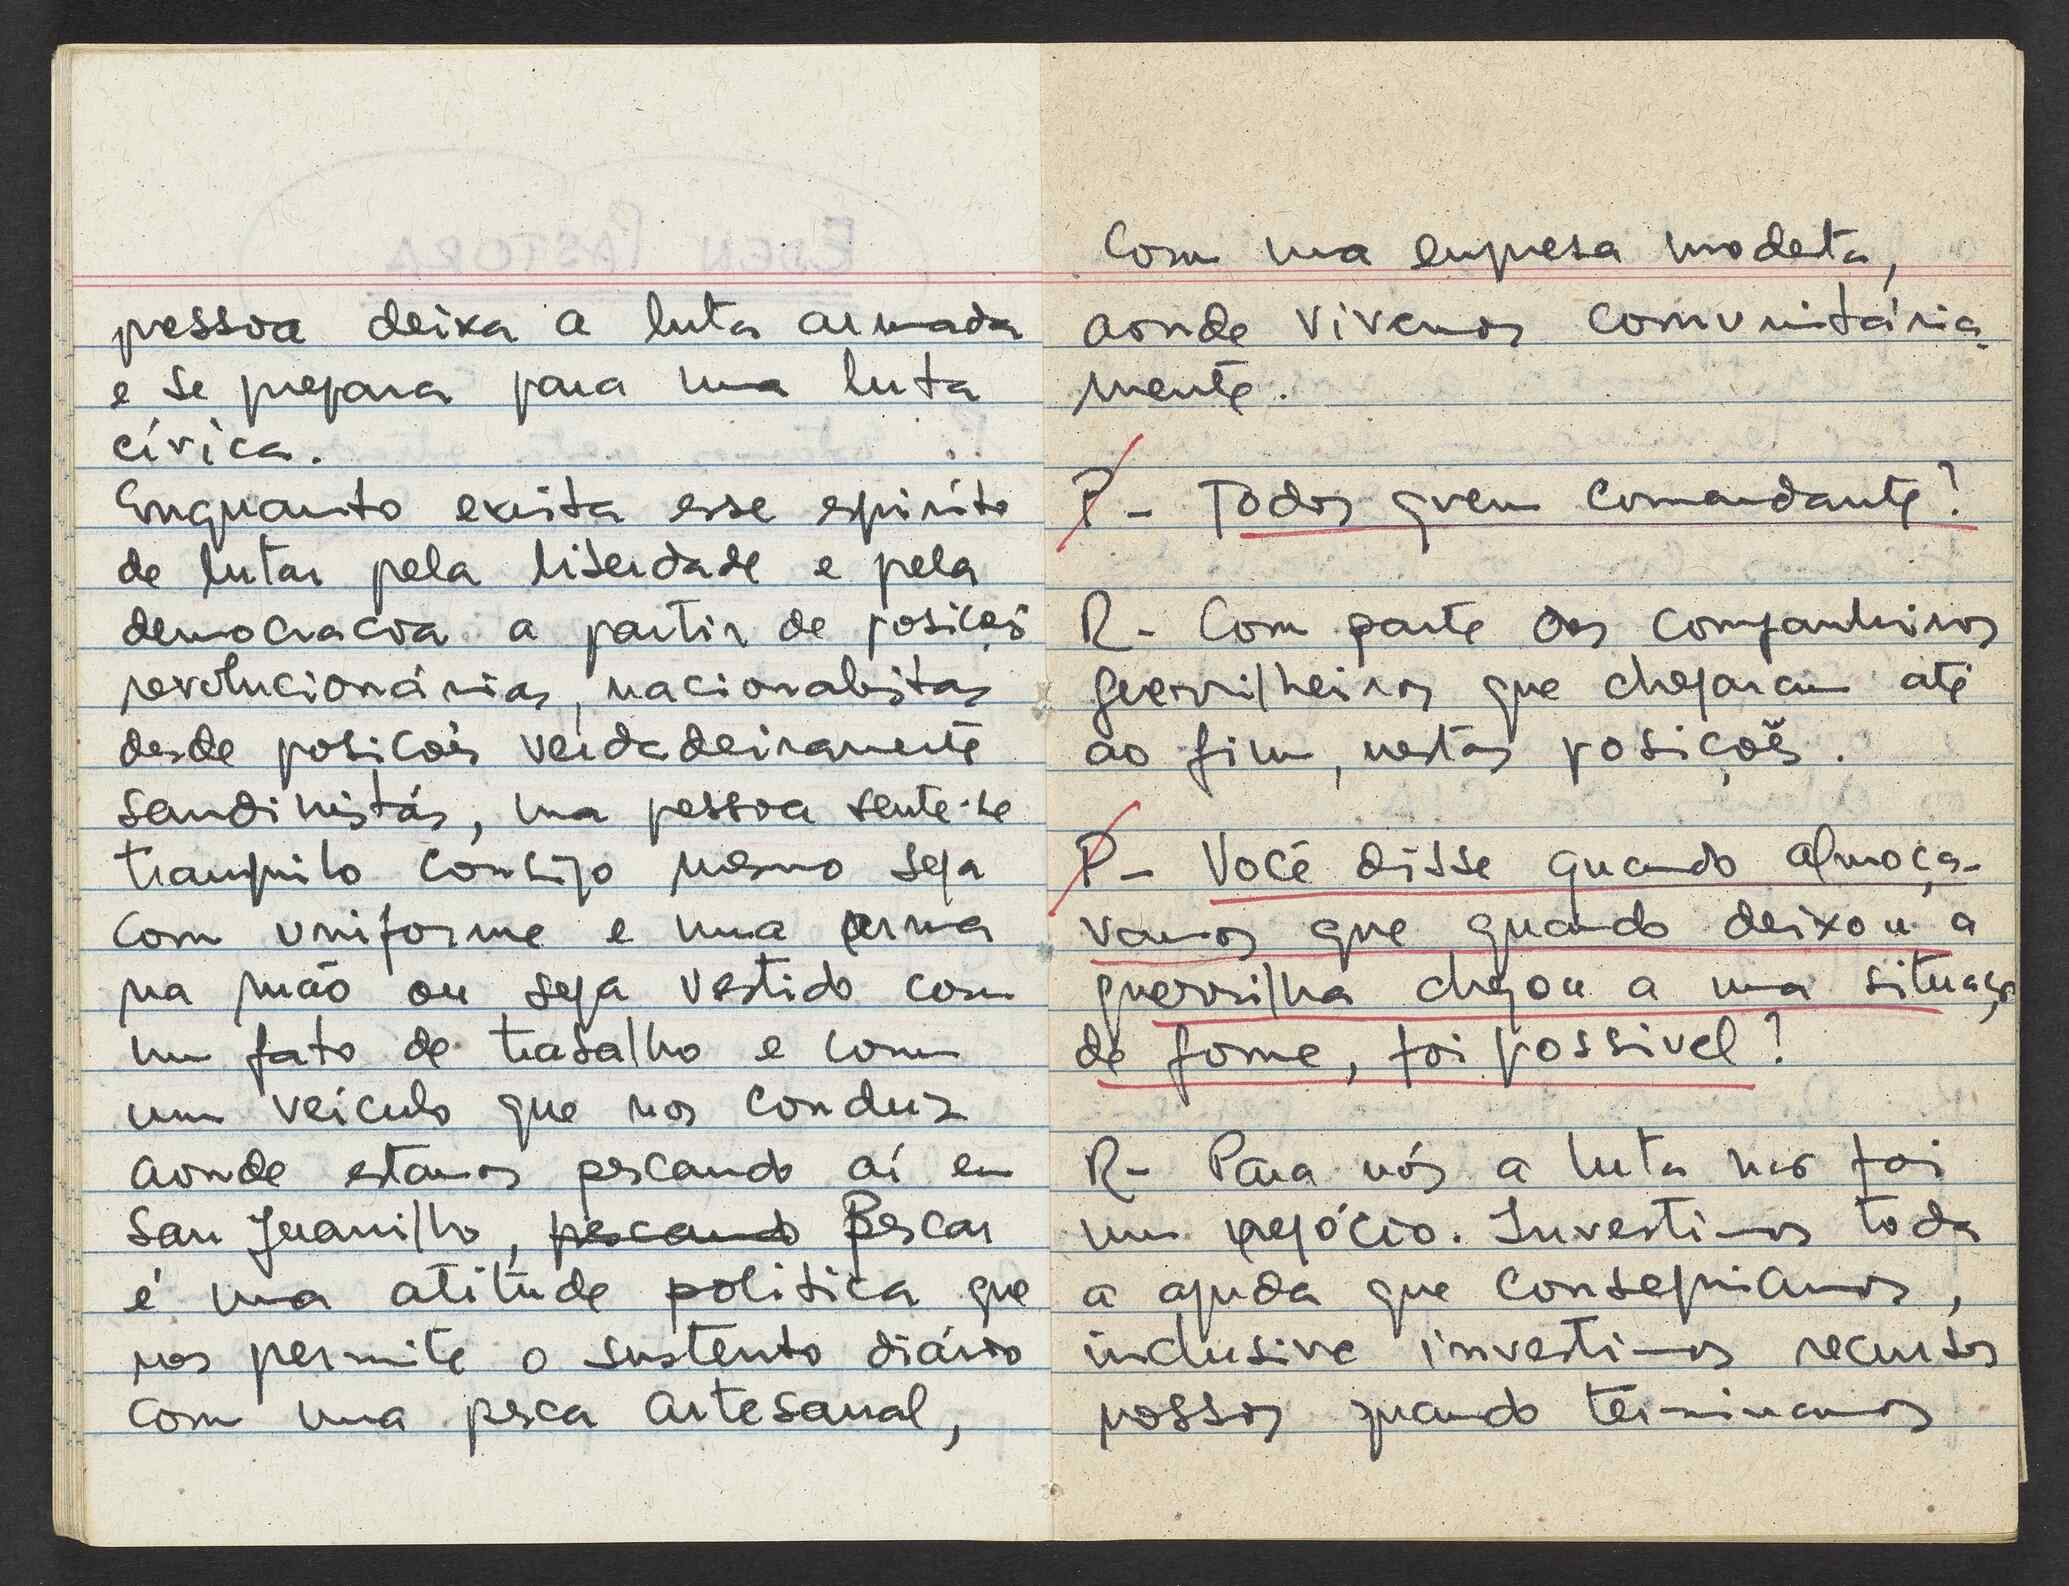 pessoa deixa a luta armada
e se prepara para uma luta
cívica.
Enquanto exista esse espírito
de lutar pela liberdade e pela
democracia a partir de posições
revolucionárias, nacionalistas
desde posições verdadeiramente
sandinistas, uma pessoa sente-se
tranquilo consigo mesmo seja
com uniforme e uma arma
na mão ou seja vestido com
um fato de trabalho e com
um veículo que nos conduz
aonde estamos pescando aí em
San Juanilho, pescando Pescar
é uma atitude politica que
nos permite o sustento diário
com uma pesca artesanal,
com uma empresa modesta,
aonde vivemos comunitária-
mente.
P- Todos quem comandante?
R- Com parte dos companheiros
guerrilheiros que chegaram até
ao fim, nestas posições.
P- Você disse quando almoça-
vamos que quando deixou a
guerrilha chegou a uma situação
de fome, foi possivel?
R- Para nós a luta não foi
um negócio. Investimos toda
a ajuda que conseguiamos,
inclusive investimos recursos
nossos quando terminamos